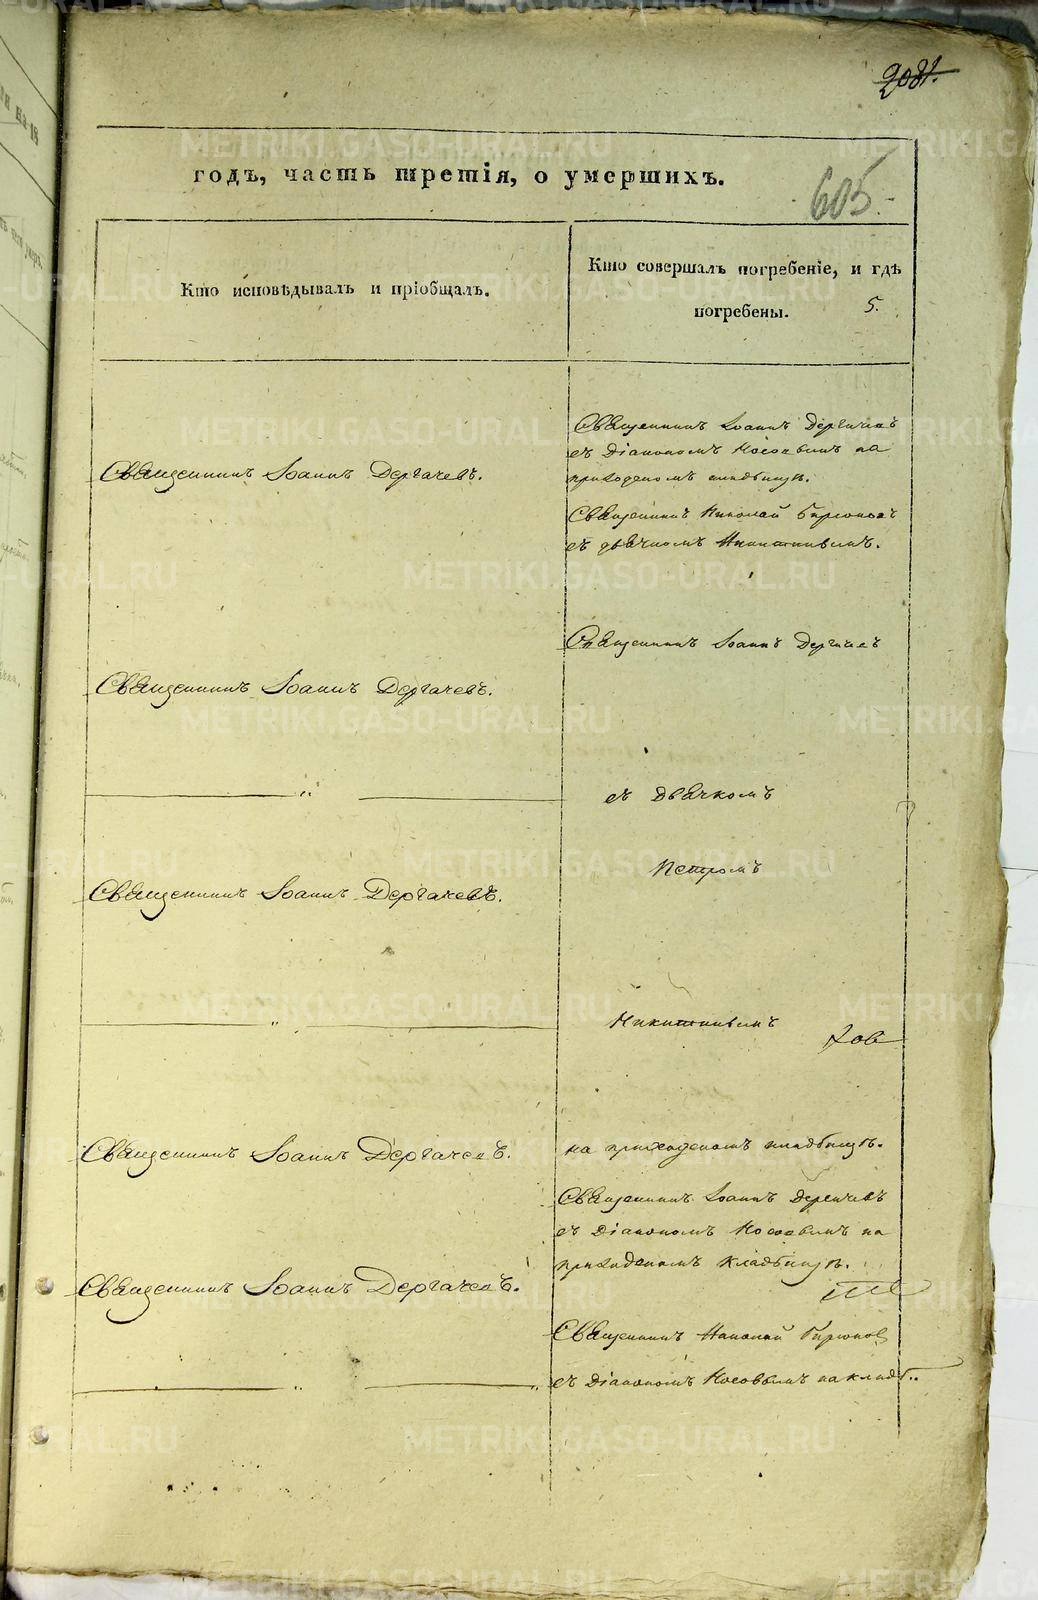 2081.
605.
годъ, часть третія, о умершихъ.
Кто исповѣдывалъ и пріобщалъ.
Кто совершалъ погребеніе, и гдѣ
погребены.
5.
Священникъ Іоаннъ Дергачевъ
съ Діакономъ Носовымъ на
приходскомъ кладбищѣ.
Священникъ Іоаннъ Дергачевъ.
Священникъ Николай Бирюковъ
съ дьячкомъ Никитинымъ.
Священникъ Іоаннъ Дергачевъ
Священникъ Іоаннъ Дергачевъ.
съ Дьячкомъ
Петромъ
Священникъ Іоаннъ Дергачевъ.
Никитинымъ
на приходскомъ кладбищѣ.
Священникъ Іоаннъ Дергачевъ.
Священникъ Іоаннъ Дергачевъ
съ Діакономъ Носовымъ на
приходскомъ кладбищѣ.
Священникъ Іоаннъ Дергачевъ.
Священникъ Николай Бирюков
съ Діакономъ Носовымъ на кладб..
METRIKI.GASO-URAL.RU